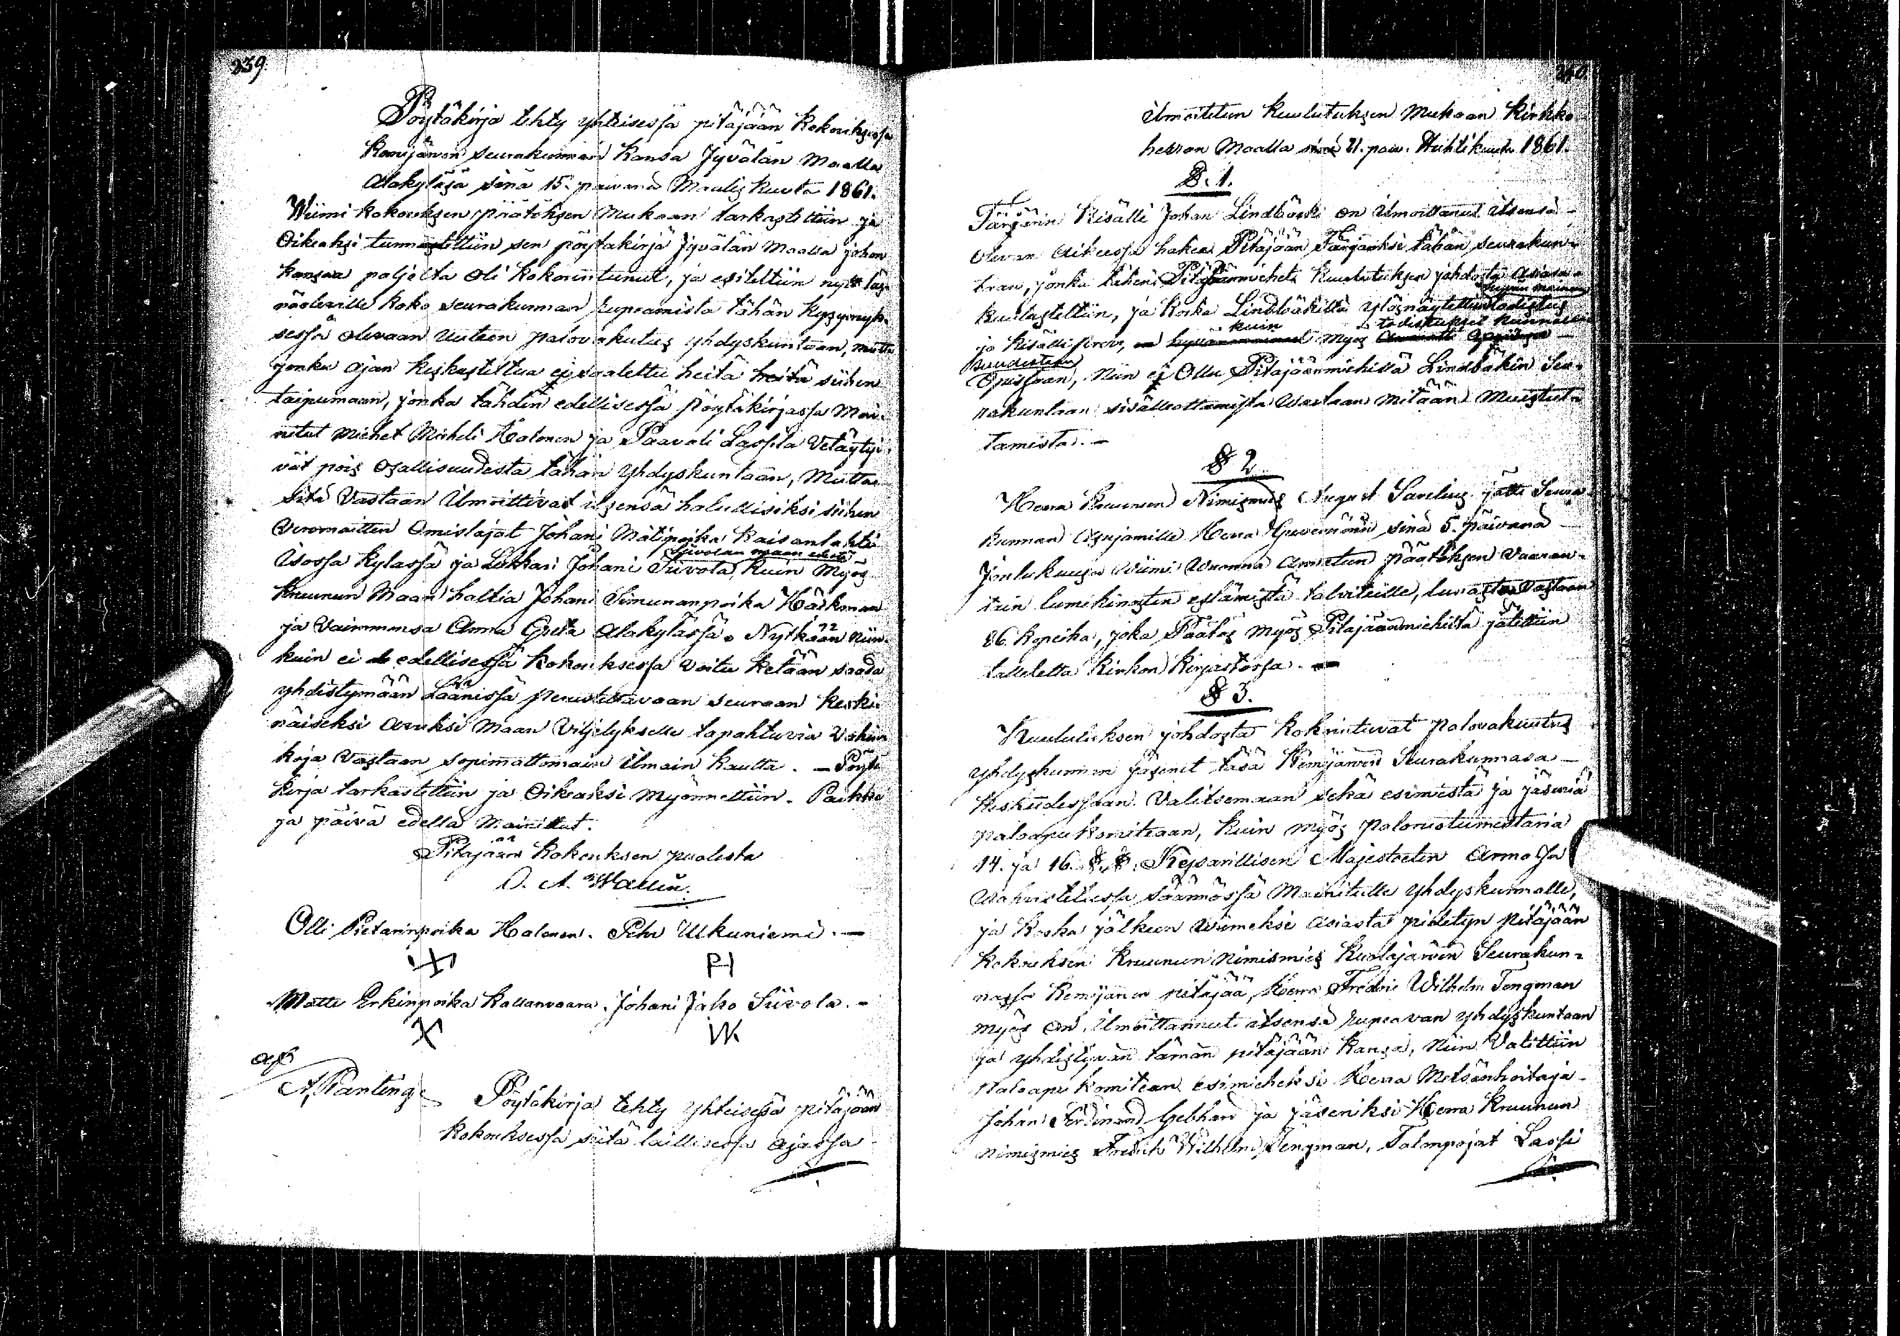 239.
Pöytäkirja tehty yhteisesså pitäjään Kokoukseſsa
Kemijärven seurakunnan Kansa Jyvälän Maalla
Alakyläsä sinä 15. päivänä Maalisskuuta 1861.
Wiimi Kokouksen päätöksen Mukaan tarkastettiin ja
Oikeaksi tunnustettiin sen pöytäkirja Jyvälän Maalla johon
Kansaa paljolta Oli Kokoontunut, ja esiteltiin nytt läs-
näoleville Koko seurakunnan rupeamista tähän Kysymyk-
sessä olevaan Uuteen palovakutus yhdyskuntaan, mutta
jonka ajan Keskusteltua ej saatettu heitä siihen
taipumaan, jonka tähdin edellisessä pöytäkirjassa Mai-
nitut Miehet Mikkeli Halonen ja Paavali Lassila Vetäytyi-
vät pois Osallisuudesta tähän Yhdyskuntaan, Mutta
sitä Vastaan Ilmoittivat itsensä halullisiksi siihen
Veromaitten Omistajat Johani Matinpoika Kaisanlahti
Usossa Kyläsä ja Lukkari Johani Siivola Kuin Myös
Kruunun Maan haltia Johani Simunanpoika Härkman
ja Vaimonsa Anna Greta Alakylässä. Nytkään niin-
kuin ei edellisessä Kokouksessa Voitu Ketään saada
yhdistymään Läänissä perustettavaan seuraan Keski-
näiseksi avuksi Maan Viljelykselle tapahtuvia Vahin-
koja Vastaan sopimattomain ilmain Kautta. — Pöytä
Kirja tarkastettiin ja Oikeaksi Myönnettiin. Paikka
ja päivä edellä Mainitut.
Pitäjään Kokouksen puolesta
O. A. Wallin.
Olli Pietarinpoika Halonen. Pehr Ulkuniemi. —
Matti Erkinpoika Kallanvaara. Johani Jako Siivola. —
Pöytäkirja tehty yhteisessä pitäjään
Kokouksessa siitä laillisessa ajassa
240.
ilmoitetun Kuulutuksen Mukaan Kirkko-
herran Maalla 21. päiv. Huhtikuuta 1861.
§. 1.
Färjärin Kisälli Johan Lindbäcki on ilmoittanut itsensä
Olevan Aikeessa hakea Pitäjään Färjäriksi tähän seurakun-
tran, jonka tähen Pitäjäänmiehet Kuulutuksen johdosta Asiasa
Kuulusteltiin, ja Koska Lindbäkiltä ylösnäytettiin todistus
ja Kisällikirja, kuin myös todistukset
Opissaan, Niin ej Ollu Pitäjäänmiehissä Lindbäkin Seu-
rakuntaan sisälleottamista Vastaan mitään Muistuta
tamista. —
§ 2.
Herra Kruunun Nimismies August Sarelius jätti Seura
kunnan Asujamille Herra Guvernörin sinä 5. päivänä
Joulukuusa Viimi Vuonna Annetun päätöksen Vaaran-
tein lumikinosten estämistä talviteille, lunasta Vastaan
86 Kopeika, joka Päätös Myös Pitäjäänmiehiltä jätettiin
talleletta Kirkon Kirjastossa. —
§ 3.
Kuulutuksen johdosta Kokountuvat palovakuutus
Yhdyskunnan jäsenet täsä Kemijärven Seurakunnasa —
Keskuudessaan Valitsemaan sekä esimiestä ja jäseniä
paloapu Komiteaan, kuin myös paloruotumestaria
14. ja 16. §. §. Kejsarillisen Majestetin Armossa
Vahvistetussa säännössä Mainitulle yhdyskunnalle,
ja Koska jälkeen Viimeksi asiasta pidetyn pitäjään
Kokouksen Kruunun nimismies Kuolajärven Seurakun-
nassa Kemijärven pitäjää, Herra Fredric Wilhelm Tengman
myös On ilmoittannut itsensä rupeavan yhdyskuntaan
ja yhdistyvän tämän pitäjään Kansa, niin Valittiin
Paloapu Komitean esimieheksi Herra Metsänhoitaja
Johan Ferdinand Gebhard ja jäseniksi Herra Kruunun
nimismies Fredrik Wilhelm Tengman, Talonpojat Lassi